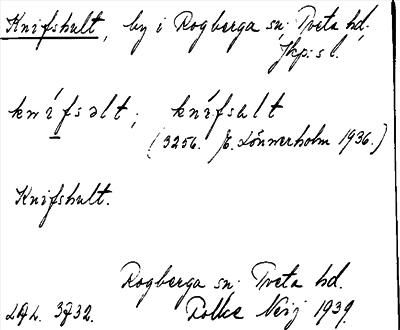 Knifshult, by i Rogberga sn; Tveta hd,
Jkp:s l.
knífsəlt; knífsult
(3256. E. Lönnerholm 1936.)
Knifshult.
Rogberga sn; Tveta hd.
Folke Neij 1939.